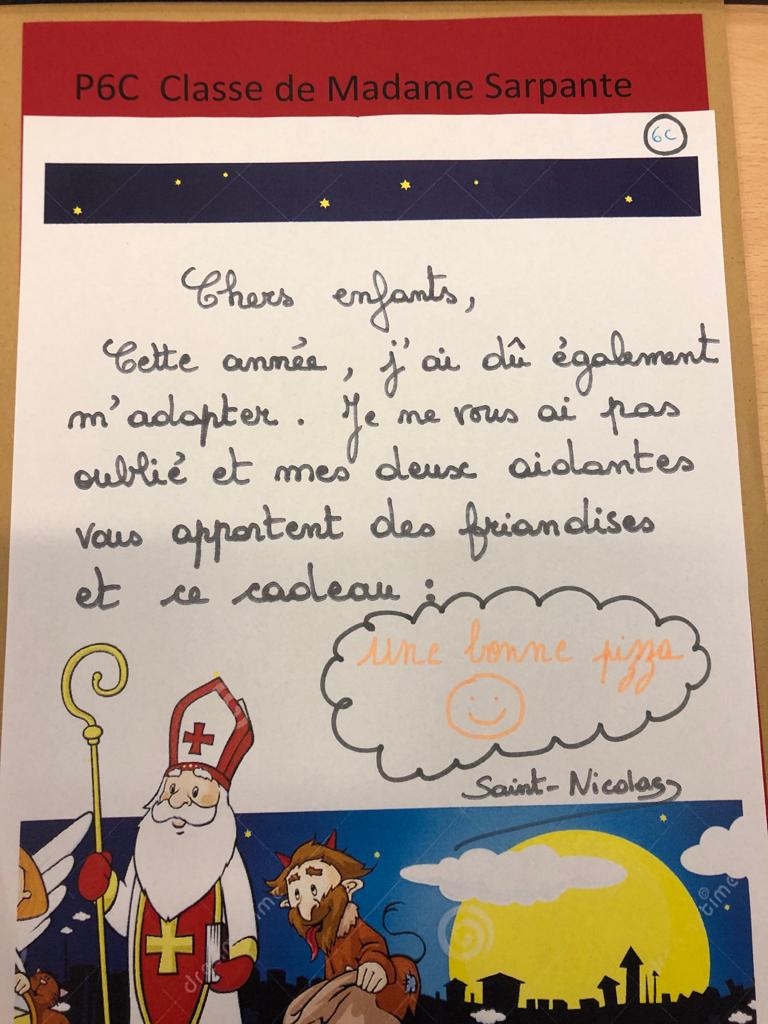 P6C Classe de Madame Sarpante
6C
Chers enfants,
Cette année, j'ai dû également
m'adapter. Je ne vous ai pas
oublié et mes deux aidantes
vous apportent des friandises
et ce cadeau :
une bonne pizza
Saint-Nicolas